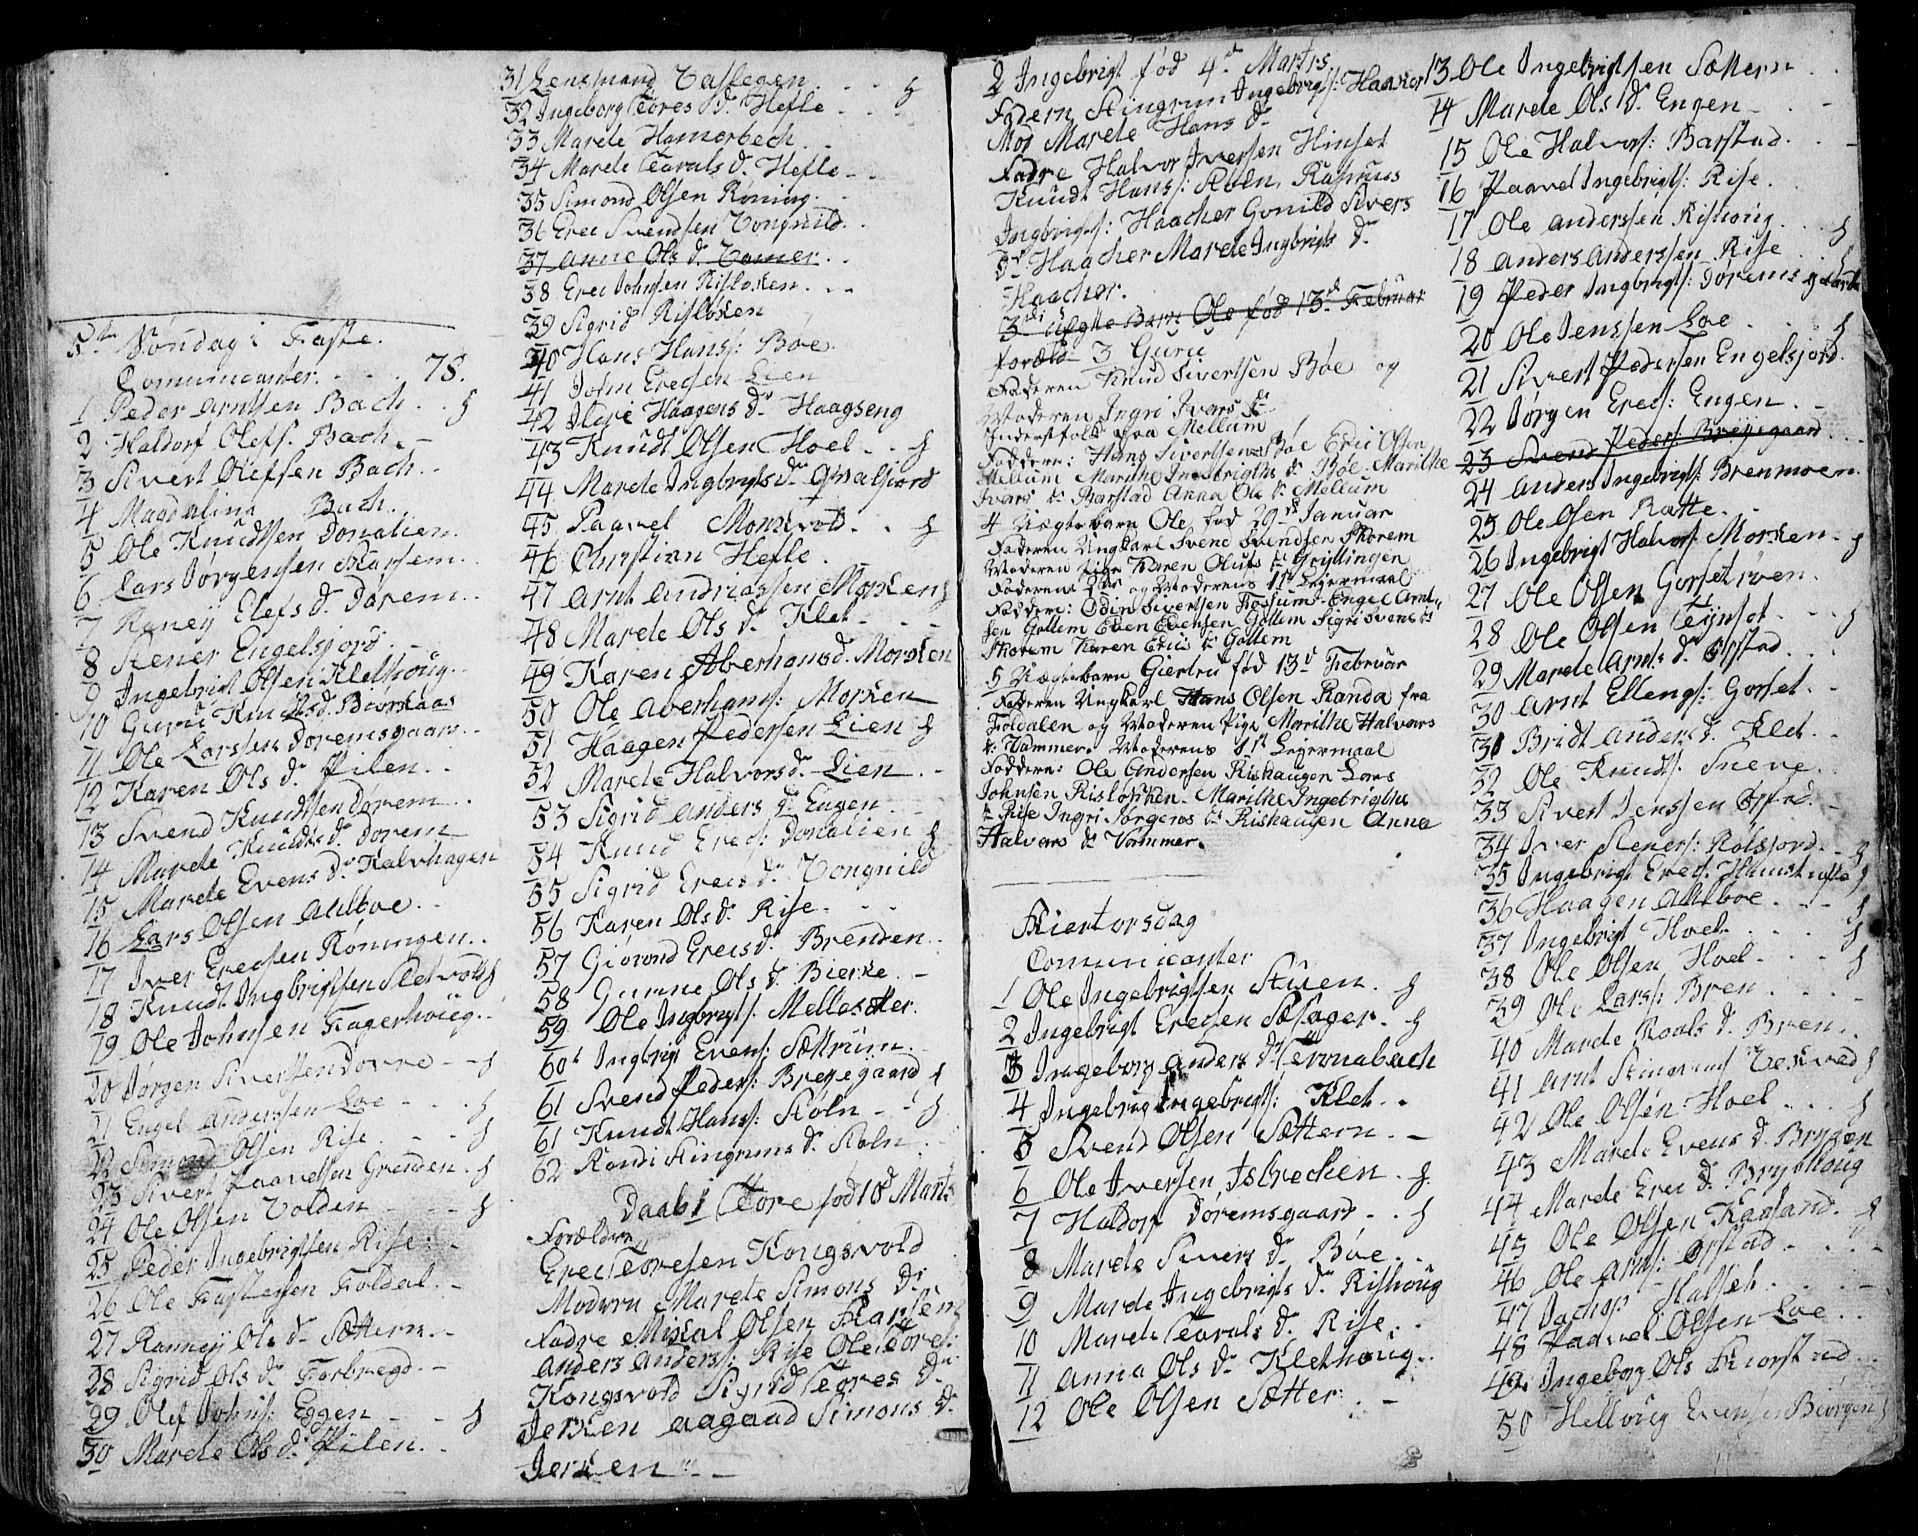 5te Søndag i Faste.
Comunicanter. - - - 78.
1 Peder Arntsen Bach. . §
2 Haldorf Olefs. Bach. -
3 Sivert Olefsen Bach. .
4 Magdalina Bach. .
5 Ole Knudtsen Donalien.
6 Lars Jørgensen
7 Raney Olefs dr Dørem. .
8 Stener Engelsjord. .
9 Ingebrigt Olsen Klethoug. .
10 Guru Knuds d. Biørkaas
11 Ole Larsen Doremsgaard. .
12 Karen Ols dr Pilen. .
13 Svend Knudtsen Dørem. .
14 Marete Knudts dr Dørem
15 Marete Evens dr Kalvhagen
16 Lars Olsen Aalboe. .
17 Iver Erecsen Røningen. .
18 Knudt Ingbrigtsen Sletvold §
19 Ole Johnsen Fagerhoug. .
20 Jørgen Sivertsen Dovre - - §
21 Engel Anderssen Loe - - - §
22 Simond Olsen Rise. - - - §
23 Sivert Paavelsen Grenden. §
24 Ole Olsen Volden - - - §
25 Peder Ingebrigtsen Rise. .
26 Ole Fastesen Foldal. -
27 Ranney Ols dr Sættern. -
28 Sigrid Ols dr Forbregd. -
29 Olef Johns: Eggen - - - §
30 Marete Ols dr Pilen. .
31 Lensmand - - - §
32 Ingeborg Tores dr Hefle - - §
33 Marete Hamerbech. .
34 Marete Toruls dr Hefle - .
35 Simond Olsen Røning. -
36 Erec Svendsen Vongnild. .
37 Anne Ols dr Vamer. .
38 Erec Johnsen Risløken. . .
39 Sigrid Risløken
40 Hans Hans: Bøe.
41 John Erecsen Lien
42 Haagens dr Haagseng
43 Knudt Olsen Hoel - . . §
44 Marete Ingbrigts dr
45 Paavel - . §
46 Christian Hefle.
47 Arnt Andreassen Morken §
48 Marete Ols dr Klet. - -
49 Karen Aberhams d. Morken
50 Ole Aberhams: Morken
51 Haagen Pedersen Lien §
52 Marete Halvors d. Lien. -
53 Sigrid Anders dr Engen. -
54 Knud Erecs: Donalien §
55 Sigrid Erecs dr Vongnild
56 Karen Ols dr Rise. - -
57 Giørond Erecs dr Brenden. .
58 Gunne Ols dr Bierke. -
59 Ole Ingbrigts: Mellesetter.
60 Ingbrigt Evens: Sættrum. -
61 Svend Peders: Breyegaard §
61 Knudt Hans: Støln - - §
62 Randi Stingrims dr Støln
Daab 1 Tore fød 10d Marts
Forældre
Erec Toresen Kongsvold
Modern Marete Simons dr
Fadre Mikal Olsen
Anders Anders: Rise Ole Tores:
Kongsvold Sigrid Tores dr
Jerken Aagaad Simons dr
Jerken - -
2 Ingebrigt fød 4d Marts
Fadern Stingrim Ingebrigts: Haaker
Mor Marete Hans dr
Fadre Halvor Iversen Hinset
Knudt Hans: Støln, Rasmus
Ingbrigts: Haacher Gonild Sivers
dr Haacher Marete Ingbrigts dr
Haacher.
3di Ægte Barn Ole fød 13d Februar
Foræld 3 Guru
Faderen Knud Sivertsen Bøe og
Moderen Ingri Ivars dr
Inderstfolk paa Mellum
Faddere: Hans Sivertsen Bøe Eric Olsen
Mellum Marithe Ingebrigths dr Bøe. Marithe
Ivars dr Barstad Anna Ols dr Mellum
4 Uægtebarn Ole fød 29de Januar
Faderen Ungkarl Svend Svendsen Skorem
Moderen Pige Karen Olufs dr Gristingen
Faderens 2det og Moderens 1st Legermaal
Faddere: Odin Sivertsen Fossum Engel Arnt-
sen Gottem Even Evensen Gottem Sigri Svends
Skorem Karen Erics dr Gottem
5 Uægtebarn Giertru fød 13d Februar
Faderen Ungkarl Hans Olsen Randa fra
Foldalen og Moderen Pige Marithe Halvars
dr Vammer. Moderens 1st Legermaal
Faddere: Ole Andersen Rishaugen Lars
Johnsen Risløkken. Marithe Ingebrigths
dr Rise Ingri Jørgens dr Rishaugen Anna
Halvars dr Vammer.
Skiertorsdag
Comunicanter
1 Ole Ingebrigtsen Stuen. §
2 Ingebrigt Erecsen §
3 Ingeborg Anders dr Tronabach
4 Ingebrigt Ingebrigts: Klet. .
5 Svend Olsen Sættern. -
6 Ole Iversen Isbrecken. - §
7 Haldorf Døremsgaard - . §
8 Marete Sivers dr Bøe. .
9 Marete Ingebrigts dr Rishoug
10 Marete Toruls dr Rise. .
11 Anna Ols dr Klethoug. .
12 Ole Olsen Sætter. -
13 Ole Ingebrigtsen Sættern . .
14 Marete Ols dr Engen - . -
15 Ole Halvors: Barstad. . -
16 Paavel Ingebrigts: Rise.
17 Ole Anderssen Rishoug. . . §
18 Anders Anderssen Rise . §
19 Peder Ingbrigts: Dorems gaard
20 Ole Jenssen Loe . . . §
21 Sivert Pedersen Engelsjord.
22 Jørgen Erecs: Engen. . -
23 Svend Peders: Breyegaard. .
24 Anders Ingebrigts: Brenmoen.
25 Ole Olsen Ratte. .
26 Ingebrigt Halvors: Morken - §
27 Ole Olsen Gorsetrøen.
28 Ole Olsen - . §
29 Marete Arnts dr Opstad. . .
30 Arnt Ellengs: Gorset. .
31 Bridt Anders d. Klet. .
32 Ole Knudts: Sneve. .
33 Sivert Jenssen
34 Iver Steners: Rolsjord. . §
35 Ingebrigt Erecs. §
36 Haagen Aalboe. . . - §
37 Ingebrigt Hoel. . . . §
38 Ole Olsen Hoel - . . §
39 Ole Lars: Bren . . . -
40 Marete Roals dr Bren. .
41 Arnt §
42 Ole Olsen Hoel . . . §
43 Marete Evens d. Brychen
44 Marete Erec d. Brychhoug
45 Ole Olsen Kaasand. . §
46 Ole Arns: Opstad - . . -
47 Jachop Halset. . . . -
48 Paavel Olsen Loe . . .
49 Ingeborg Ols
50 Hellvig Evensen Biørgen §